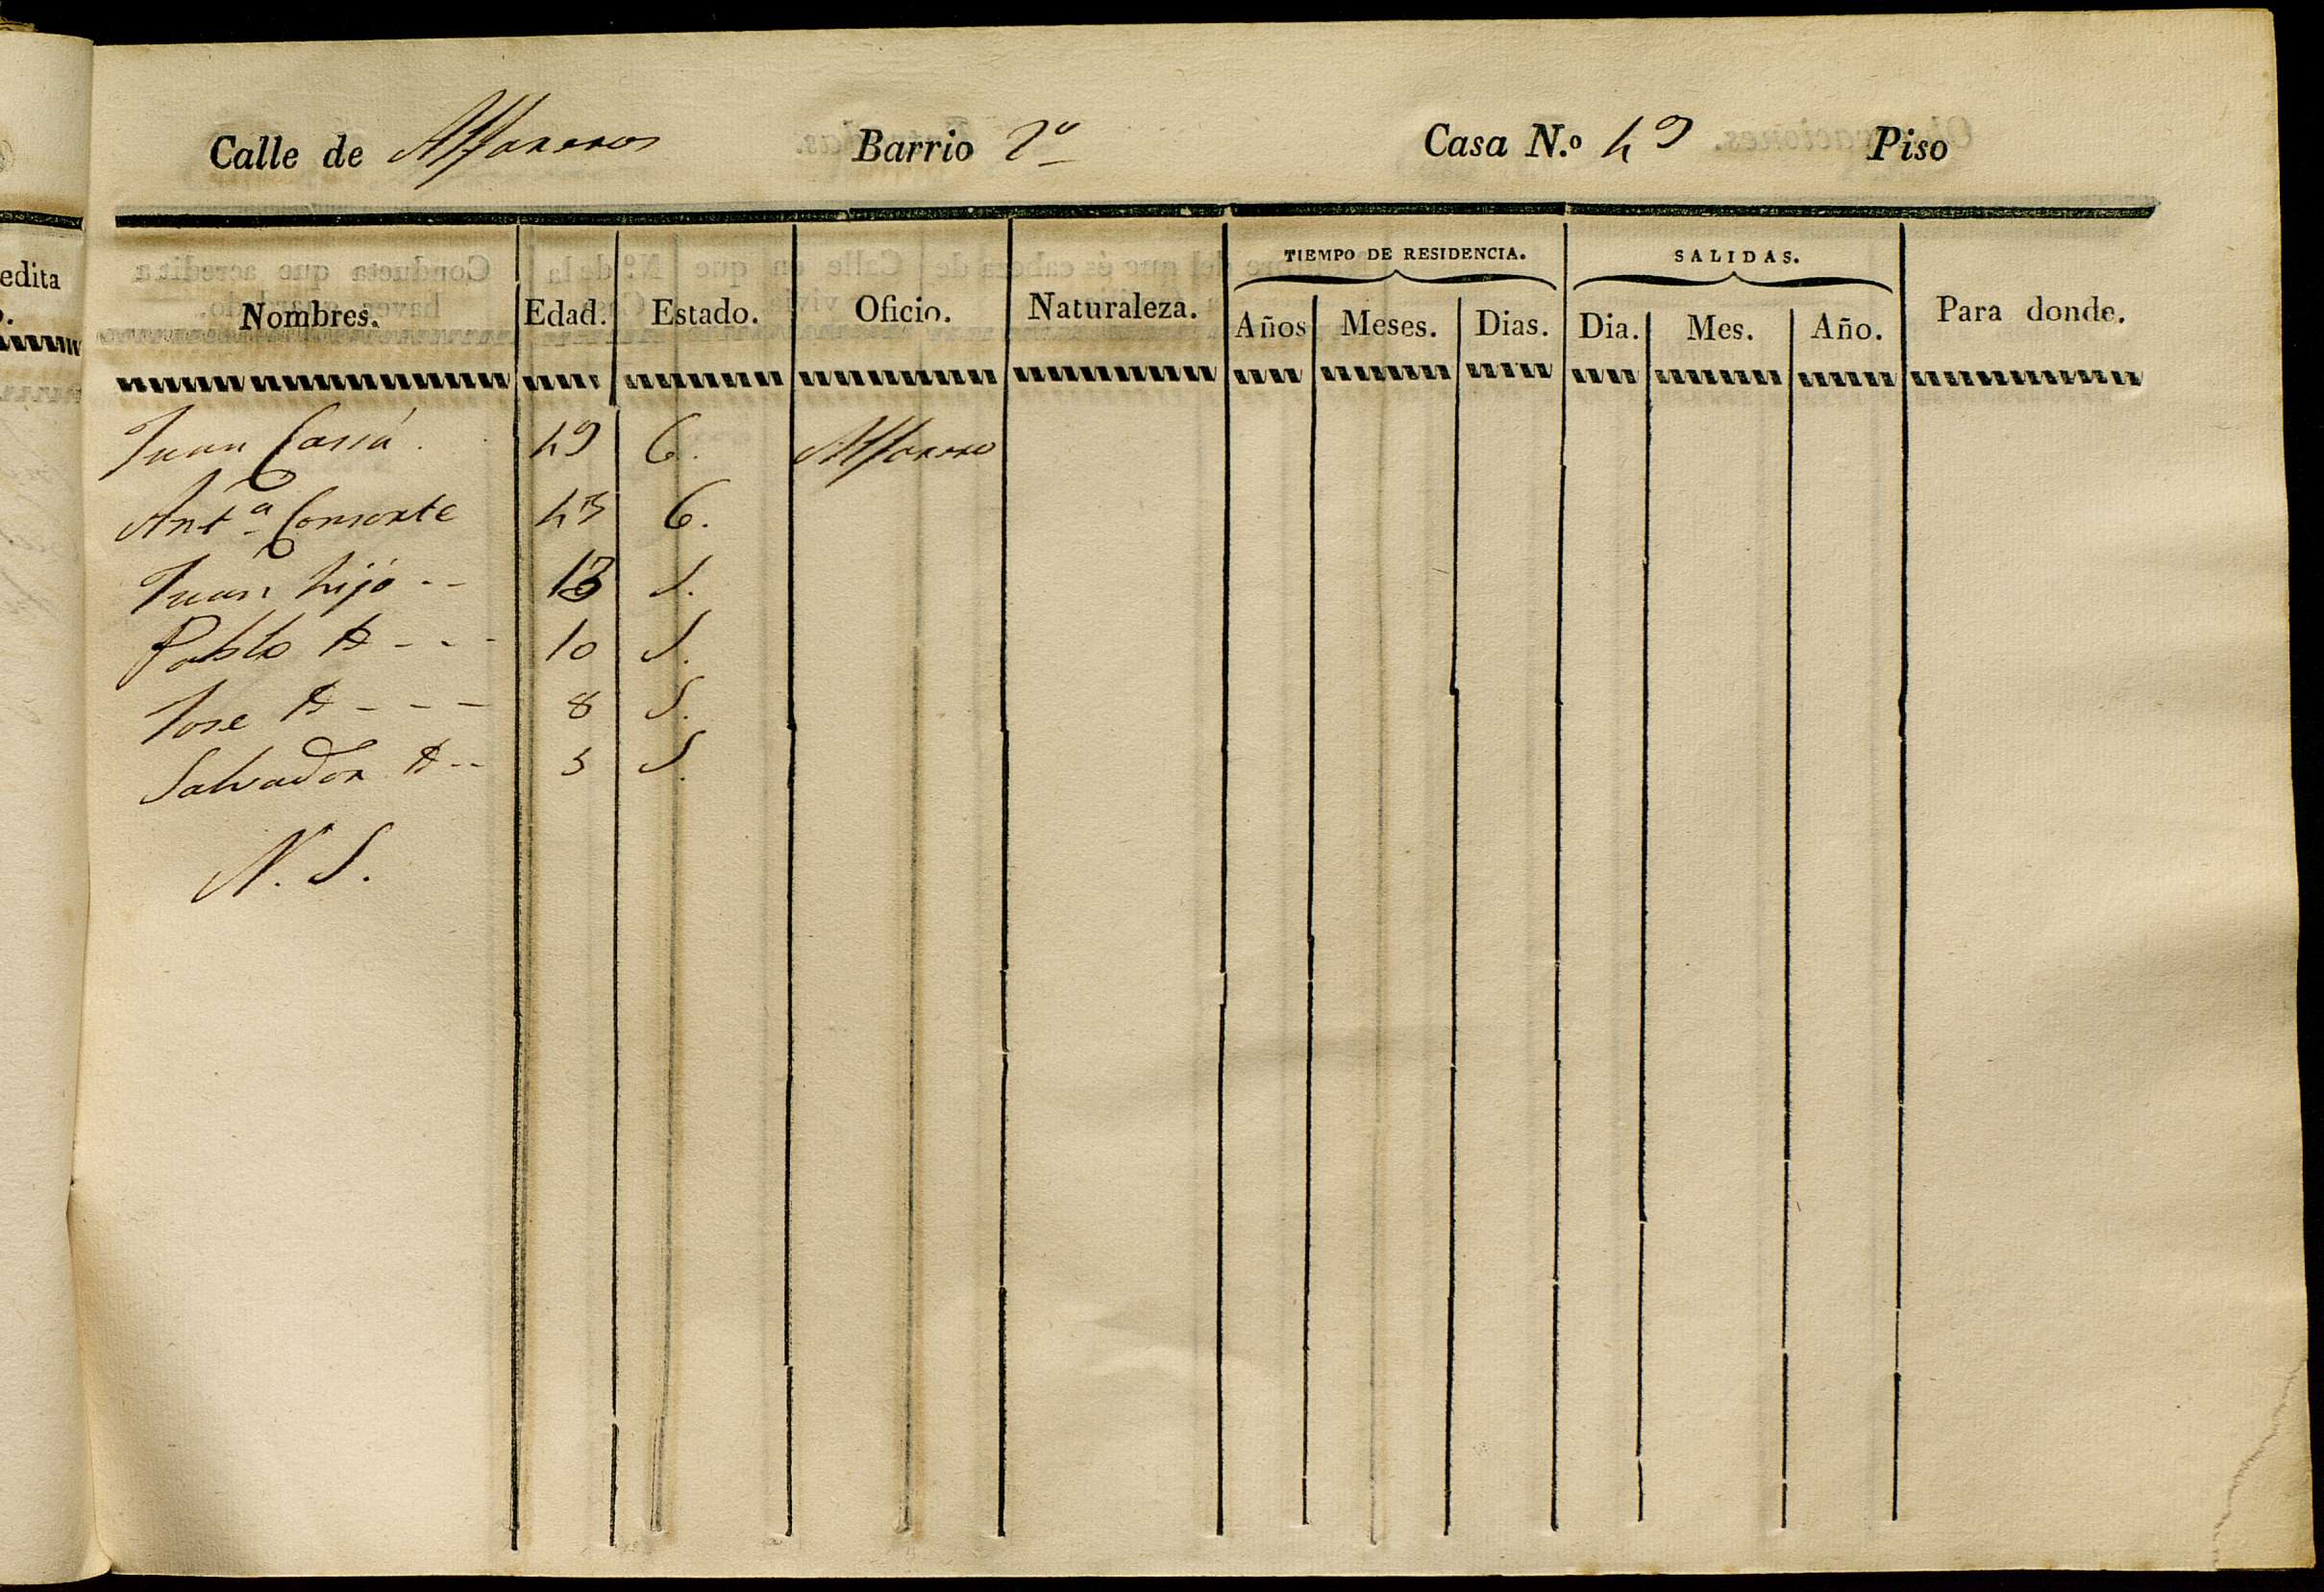 edita
Calle de Alfareros Barrio 2º Casa N.º 49 Piso
TIEMPO DE RESIDENCIA. SALIDAS.
Nombres. Edad. Estado. Oficio. Naturaleza. Años Meses. Dias. Dia. Mes. Año. Para donde.
Juan 49 C. Alfarero
Antª Consorte 43 C.
Juan hijo -- 13 S.
Pablo H --- 10 S.
Jose H --- 8 S.
Salvador H -- 3 S.
N. S.